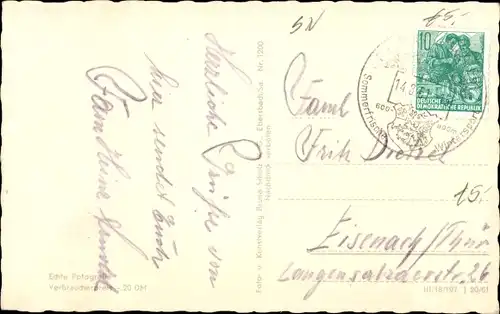 Herzliche Grüße von
hier sendet Euch
Fam Heinz
Echte Fotografie
Verbraucherpreis -,20 DM
Foto- u. Kunstverlag Bruno Scholz Ebersbach-Sa. Nr. 1200
Nachdruck verboten
5N
15.-
10
DEUTSCHE
DEMOKRATISCHE REPUBLIK
14.8.
Sommerfrische
Wintersport
600m
Faml
Fritz Dressel
15.-
Eisenach/Thür
Langensalzaerstr. 26
III/18/197 J 30/61